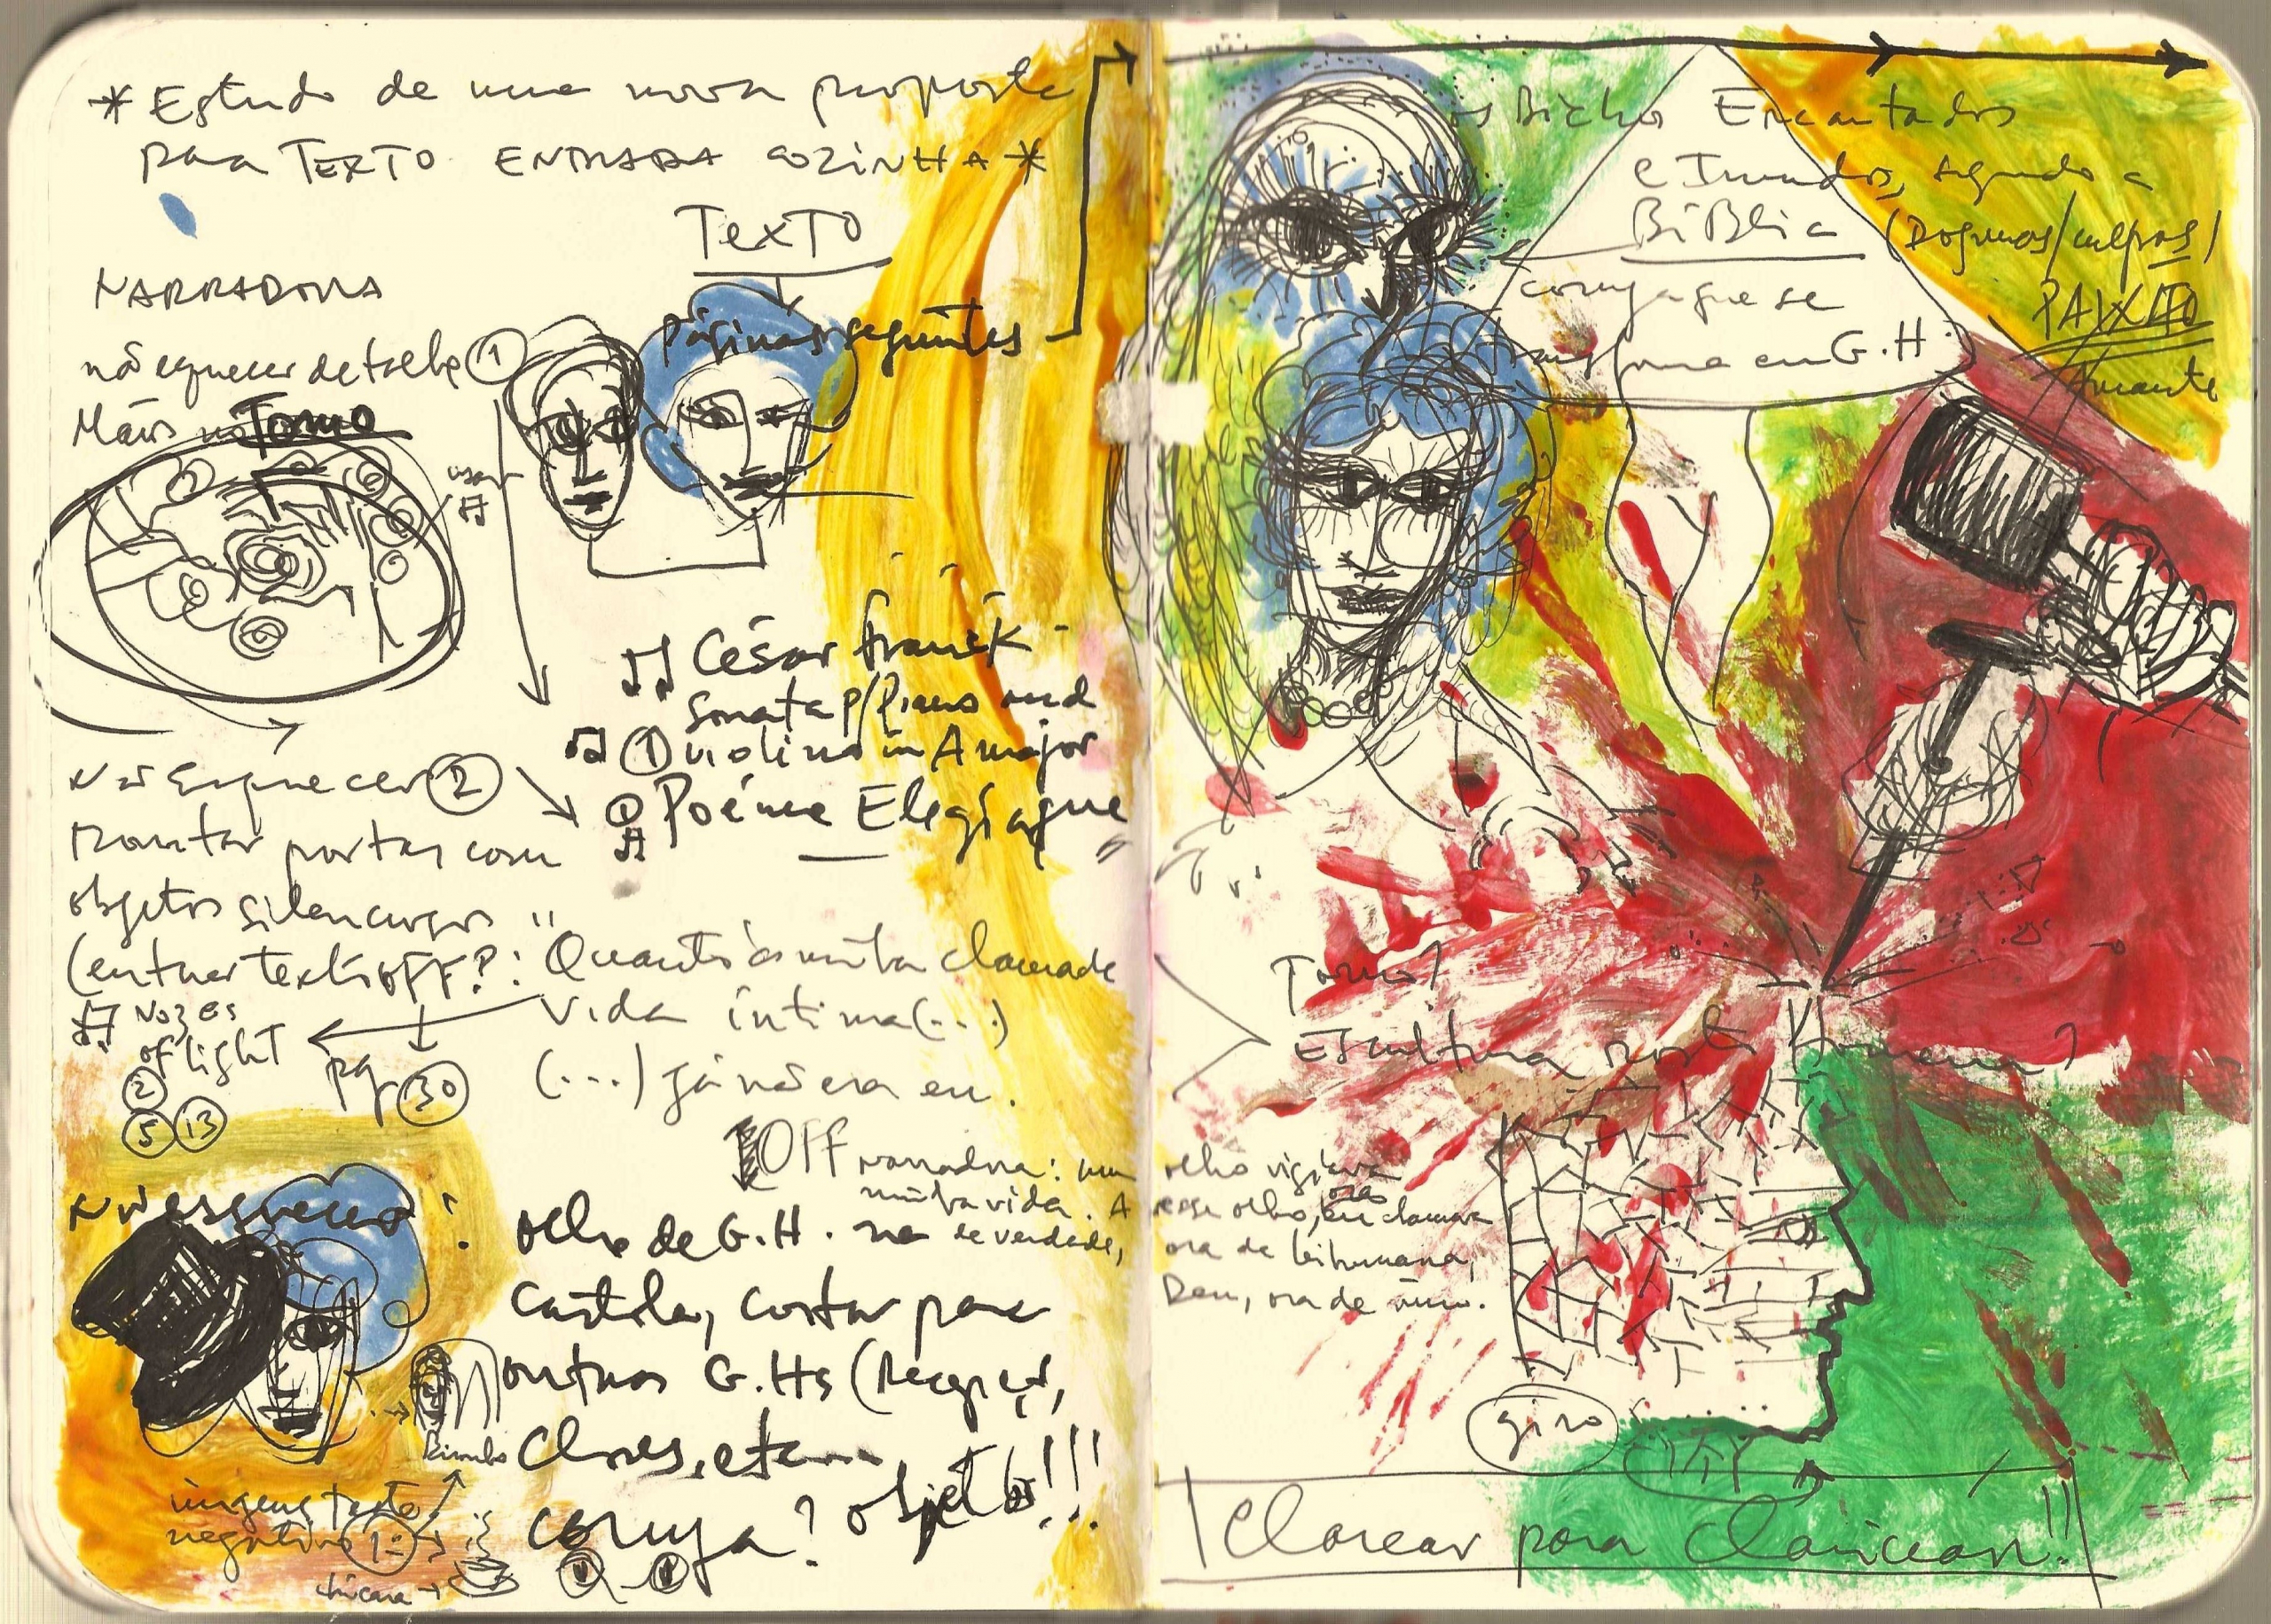 *Estudo de uma nova proposta
para TEXTO ENTRADA COZINHA*
TEXTO
páginas seguintes
NARRADORA
não esquecer detalhe 1
Mãos no Torno
usar
César Franck
Sonata p/ Piano and
1 violino in A major
Poéme Elegíaque
Não Esquecer 2
montar portas com
objetos silenciosos
(entrar texto off?:
"Quanto à minha chamada
vida íntima (...)
(...) já não era eu.
Noz es
of light
2
5 13
pg 30
Off narradora: um
minha vida. A
se verdade,
Não esquecer:
olho de G.H. na
cartola, cortar para
outras G.Hs (Recycer,
Clones, etc...
coruja? objeto!!!
imagens texto
negativo
chícara
os Bichos Encantados
e Imundos, segundo a
BíBlia (Dogmas/culpas)
PAIXÃO
Amante
coruja que se
transforma em G.H.
Torno?
Escultura rosto Homem?
olho vigiava
esse olho, ora eu chamava
ora de lei humana,
Deu, ora de mim.
giro
Clarear para claricear!!